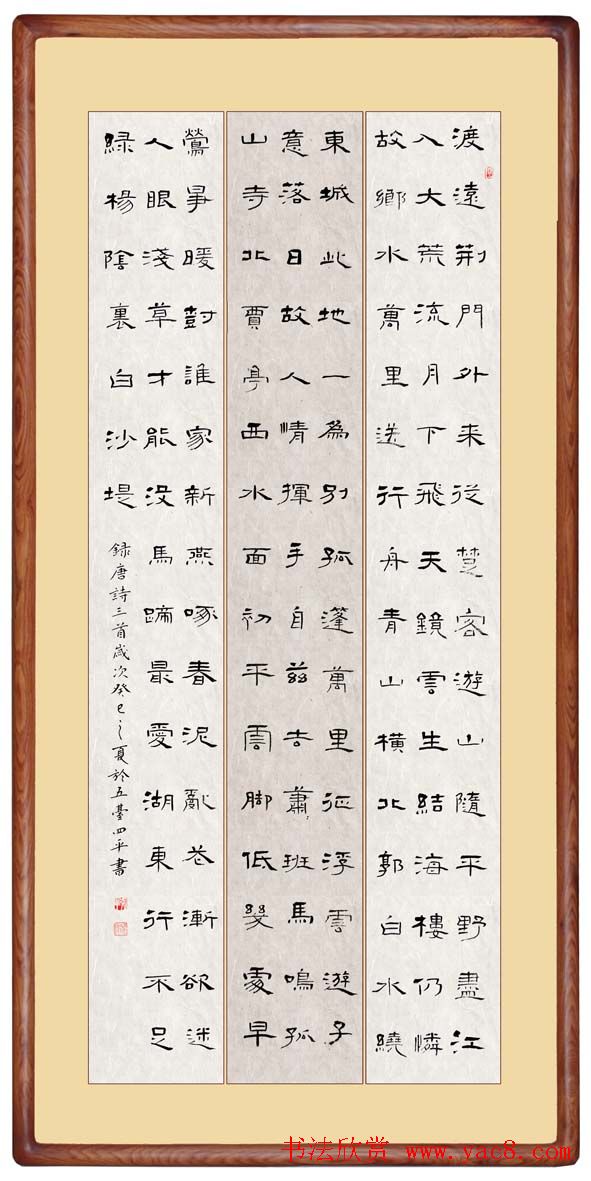 渡遠荊門外來從楚客遊山隨平野盡江
入大荒流月下飛天鏡雲生結海樓仍憐
故鄉水萬里送行舟青山橫北郭白水繞
東城此地一為別孤蓬萬里征浮雲遊子
意落日故人情揮手自茲去蕭〻班馬鳴孤
山寺北賈亭西水面初平雲脚低幾處早
鶯爭暖尌誰家新燕啄春泥亂花漸欲迷
人眼淺草才能沒馬蹄最愛湖東行不足
綠楊陰裏白沙堤
錄唐詩三首歲次癸巳之夏於五臺四平書
书法欣赏 www.yac8.com